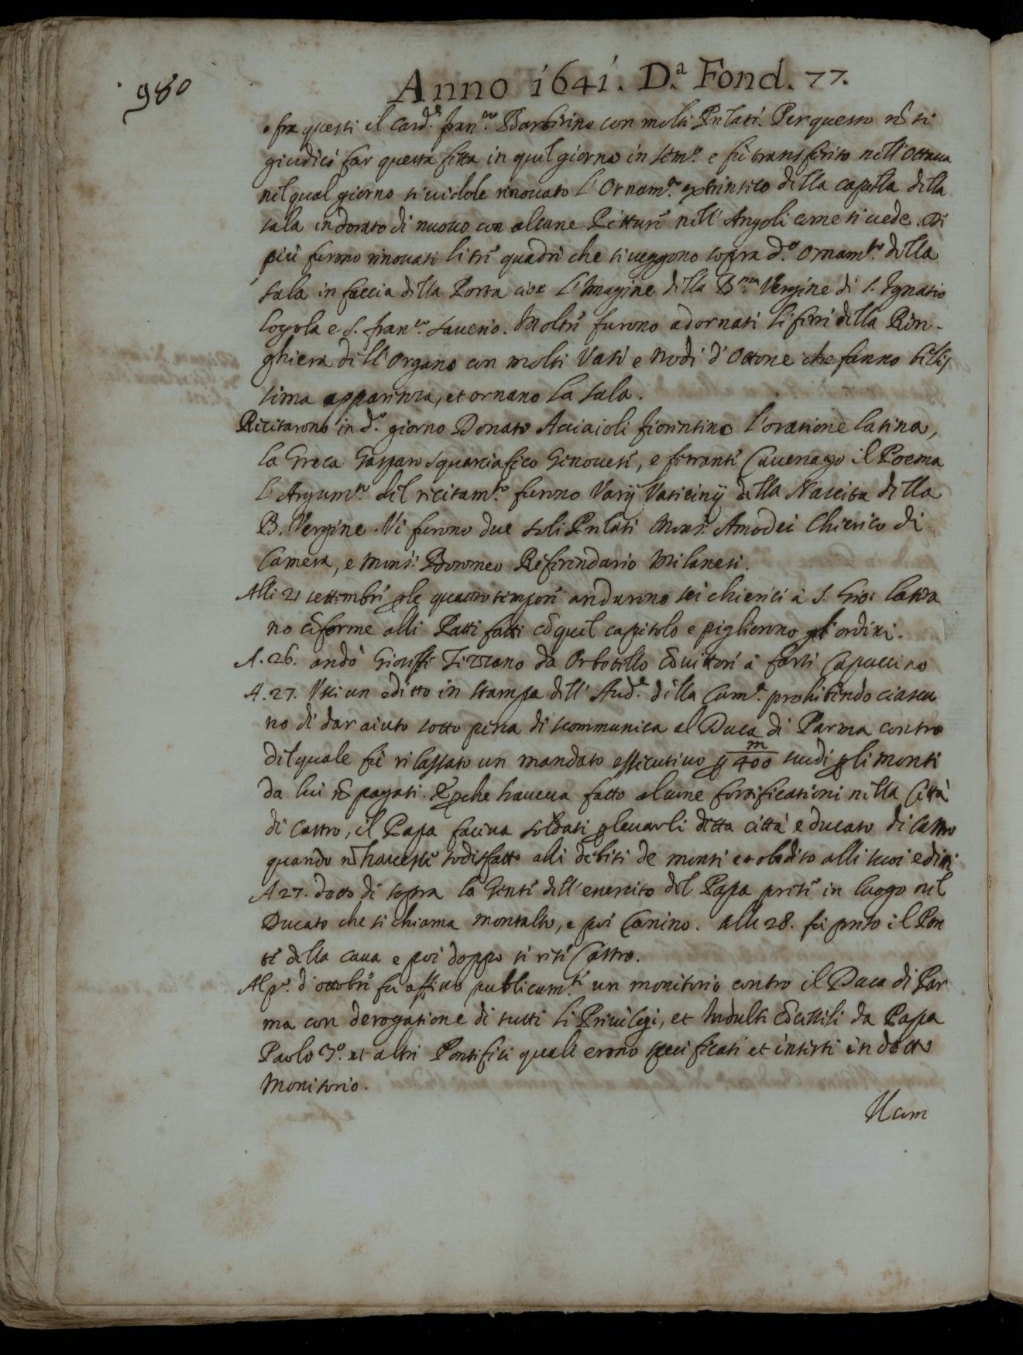 980
Anno 1641. D.ª Fond. 77.
e fra questi il Card.le fran.co Barbirino con molti Prelati. Per questo nō si
giudicò far questa festa in quel giorno in sett.e e fù transferito nell'Ottava
nel qual giorno si vidde rinovato l'Ornam.to extrinseco della capella della
sala indorato di nuovo con alcune Pitture nell'Angoli come si vede. Di
più furono rinovati li tre quadri che si veggono sopra d.o Ornam.to della
sala in faccia della Porta cioe l'Imagine della B.ma Vergine di S. Ignatio
Loyola e S. fran.co Saverio. Inoltre furono adornati li ferri della Rin-
ghiera dell'Organo con molti Vasi e Nodi d'Ottone che fanno bellis
sima apparenza, et ornano la sala.
Recitarono in d.o giorno Donato Aciaioli fiorentino l'oratione latina,
la Greca Gasparo Squarciafico Genovese, e ferrante Cavenago il Poema
l'Argum.to del recitam.to furono Varij Vaticinij della Nascita della
B. Vergine. Vi furono due soli Prelati Mons.r Amodei Chierico di
Camera, e Mons.r Boromeo Referendario Milanesi.
Alli 21 settembre ple quattro tempore andarono sei chierici à S. Gio: Latera
no cōforme alli Patti fatti cō quel capitolo e pigliorno gl'ordini.
A. 26. andò Gioseffe Tizzano da Orbetello cōvittore à farsi Capuccino
A. 27. Usci un editto in stampa dell'Aud.e della Cam.a prohibendo ciascu
no di dar aiuto sotto pena di scommunica al Duca di Parma contro
del quale fù rilassato un mandato essecutivo p m/400 scudi pli monti
da lui nō pagati. Et pche haveva fatto alcune fortificationi nella Città
di Castro, il Papa faceva soldati plevarli detta città e ducato di Castro
quando nō havesse sodisfatto alli debiti de monti et obedito alli suoi editti
A 27. detto di sopra la Gente dell'esercito del Papa prese in luogo nel
Ducato che si chiama Montalto, e poi Canino. alli 28. fù preso il Pon
te della cava e poi doppo si rese Castro.
Al p.o d'ottobre fù affisso publicam.te un monitorio contro il Duca di Par
ma con derogatione di tutti li Privilegi, et Indulti cōcessili da Papa
Paolo 3.o et altri Pontefici quali erono specificati et inserti in detto
Monitorio.